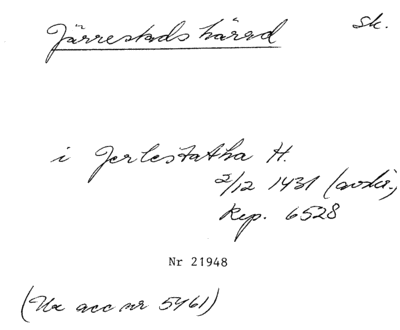 Järrestads härad
Sk.
i Jerlestatha H.
2/12 1431 (avskr.)
Rep. 6528
Nr 21948
(Ux acc nr 5461)